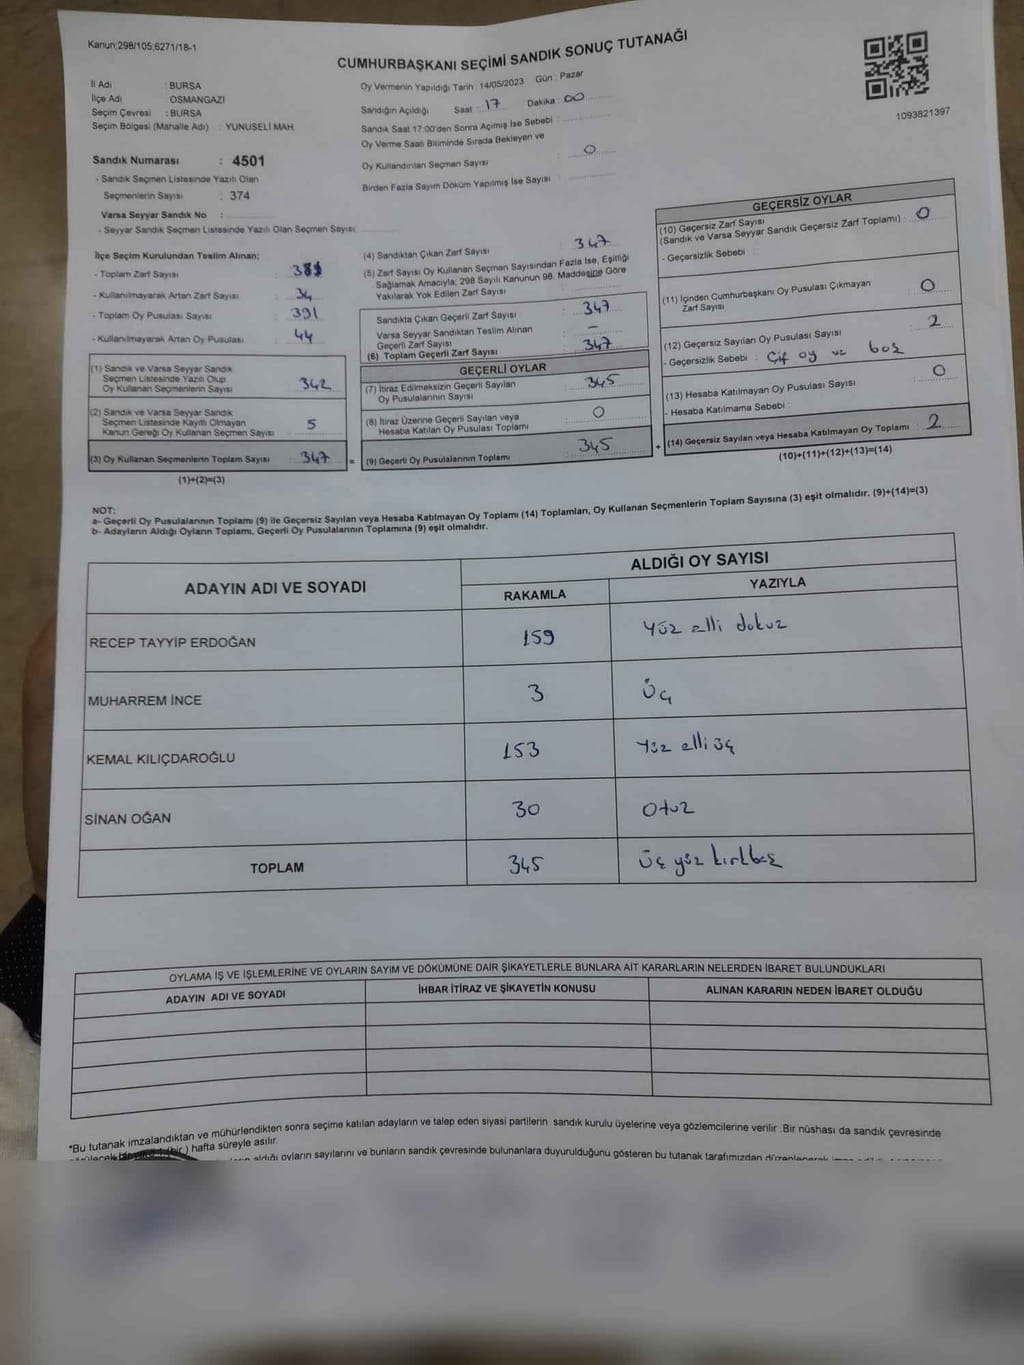 Kanun;298/105;6271/18-1
CUMHURBAŞKANI SEÇİMİ SANDIK SONUÇ TUTANAĞI
1093821397
İl Adı : BURSA
İlçe Adı : OSMANGAZI
Seçim Çevresi : BURSA
Seçim Bölgesi (Mahalle Adı) : YUNUSELİ MAH.
Sandık Numarası : 4501
- Sandık Seçmen Listesinde Yazılı Olan
Seçmenlerin Sayısı : 374
Varsa Seyyar Sandık No :
- Seyyar Sandık Seçmen Listesinde Yazılı Olan Seçmen Sayısı :
Oy Vermenin Yapıldığı Tarih : 14/05/2023 Gün : Pazar
Sandığın Açıldığı Saat : 17 Dakika : 00
Sandık Saat 17:00'den Sonra Açımış İse Sebebi :
Oy Verme Saati Bitiminde Sırada Bekleyen ve
Oy Kullandırılan Seçmen Sayısı : 0
Birden Fazla Sayım Döküm Yapılmış İse Sayısı :
İlçe Seçim Kurulundan Teslim Alınan;
- Toplam Zarf Sayısı :
- Kullanılmayarak Artan Zarf Sayısı : 34
- Toplam Oy Pusulası Sayısı : 391
- Kullanılmayarak Artan Oy Pusulası : 44
(1) Sandık ve Varsa Seyyar Sandık
Seçmen Listesinde Yazılı Olup
Oy Kullanan Seçmenlerin Sayısı : 342
(2) Sandık ve Varsa Seyyar Sandık
Seçmen Listesinde Kayıtlı Olmayan
Kanun Gereği Oy Kullanan Seçmen Sayısı : 5
(3) Oy Kullanan Seçmenlerin Toplam Sayısı : 347
(1)+(2)=(3)
(4) Sandıktan Çıkan Zarf Sayısı : 347
(5) Zarf Sayısı Oy Kullanan Seçmen Sayısından Fazla İse, Eşitliği
Sağlamak Amacıyla; 298 Sayılı Kanunun 98. Maddesine Göre
Yakılarak Yok Edilen Zarf Sayısı :
Sandıkta Çıkan Geçerli Zarf Sayısı : 347
Varsa Seyyar Sandıktan Teslim Alınan
Geçerli Zarf Sayısı : –
(6) Toplam Geçerli Zarf Sayısı : 347
=
GEÇERLİ OYLAR
(7) İtiraz Edilmeksizin Geçerli Sayılan
Oy Pusulalarının Sayısı : 345
(8) İtiraz Üzerine Geçerli Sayılan veya
Hesaba Katılan Oy Pusulası Toplamı : 0
(9) Geçerli Oy Pusulalarının Toplamı : 345
+
GEÇERSİZ OYLAR
(10) Geçersiz Zarf Sayısı
(Sandık ve Varsa Seyyar Sandık Geçersiz Zarf Toplamı) : 0
- Geçersizlik Sebebi :
(11) İçinden Cumhurbaşkanı Oy Pusulası Çıkmayan
Zarf Sayısı : 0
(12) Geçersiz Sayılan Oy Pusulası Sayısı : 2
- Geçersizlik Sebebi : Çif oy ve boş
(13) Hesaba Katılmayan Oy Pusulası Sayısı : 0
- Hesaba Katılmama Sebebi :
(14) Geçersiz Sayılan veya Hesaba Katılmayan Oy Toplamı : 2
(10)+(11)+(12)+(13)=(14)
NOT:
a- Geçerli Oy Pusulalarının Toplamı (9) ile Geçersiz Sayılan veya Hesaba Katılmayan Oy Toplamı (14) Toplamları, Oy Kullanan Seçmenlerin Toplam Sayısına (3) eşit olmalıdır. (9)+(14)=(3)
b- Adayların Aldığı Oyların Toplamı, Geçerli Oy Pusulalarının Toplamına (9) eşit olmalıdır.
ADAYIN ADI VE SOYADI ALDIĞI OY SAYISI
RAKAMLA YAZIYLA
RECEP TAYYİP ERDOĞAN 159 Yüz elli dokuz
MUHARREM İNCE 3 Üç
KEMAL KILIÇDAROĞLU 153 Yüz elli üç
SİNAN OĞAN 30 Otuz
TOPLAM 345 Üç yüz kırkbeş
OYLAMA İŞ VE İŞLEMLERİNE VE OYLARIN SAYIM VE DÖKÜMÜNE DAİR ŞİKAYETLERLE BUNLARA AİT KARARLARIN NELERDEN İBARET BULUNDUKLARI
ADAYIN ADI VE SOYADI İHBAR İTİRAZ VE ŞİKAYETİN KONUSU ALINAN KARARIN NEDEN İBARET OLDUĞU
*Bu tutanak imzalandıktan ve mühürlendikten sonra seçime katılan adayların ve talep eden siyasi partilerin sandık kurulu üyelerine veya gözlemcilerine verilir .Bir nüshası da sandık çevresinde
(bir ) hafta süreyle asılır.
aldığı oyların sayılarını ve bunların sandık çevresinde bulunanlara duyurulduğunu gösteren bu tutanak tarafımızdan